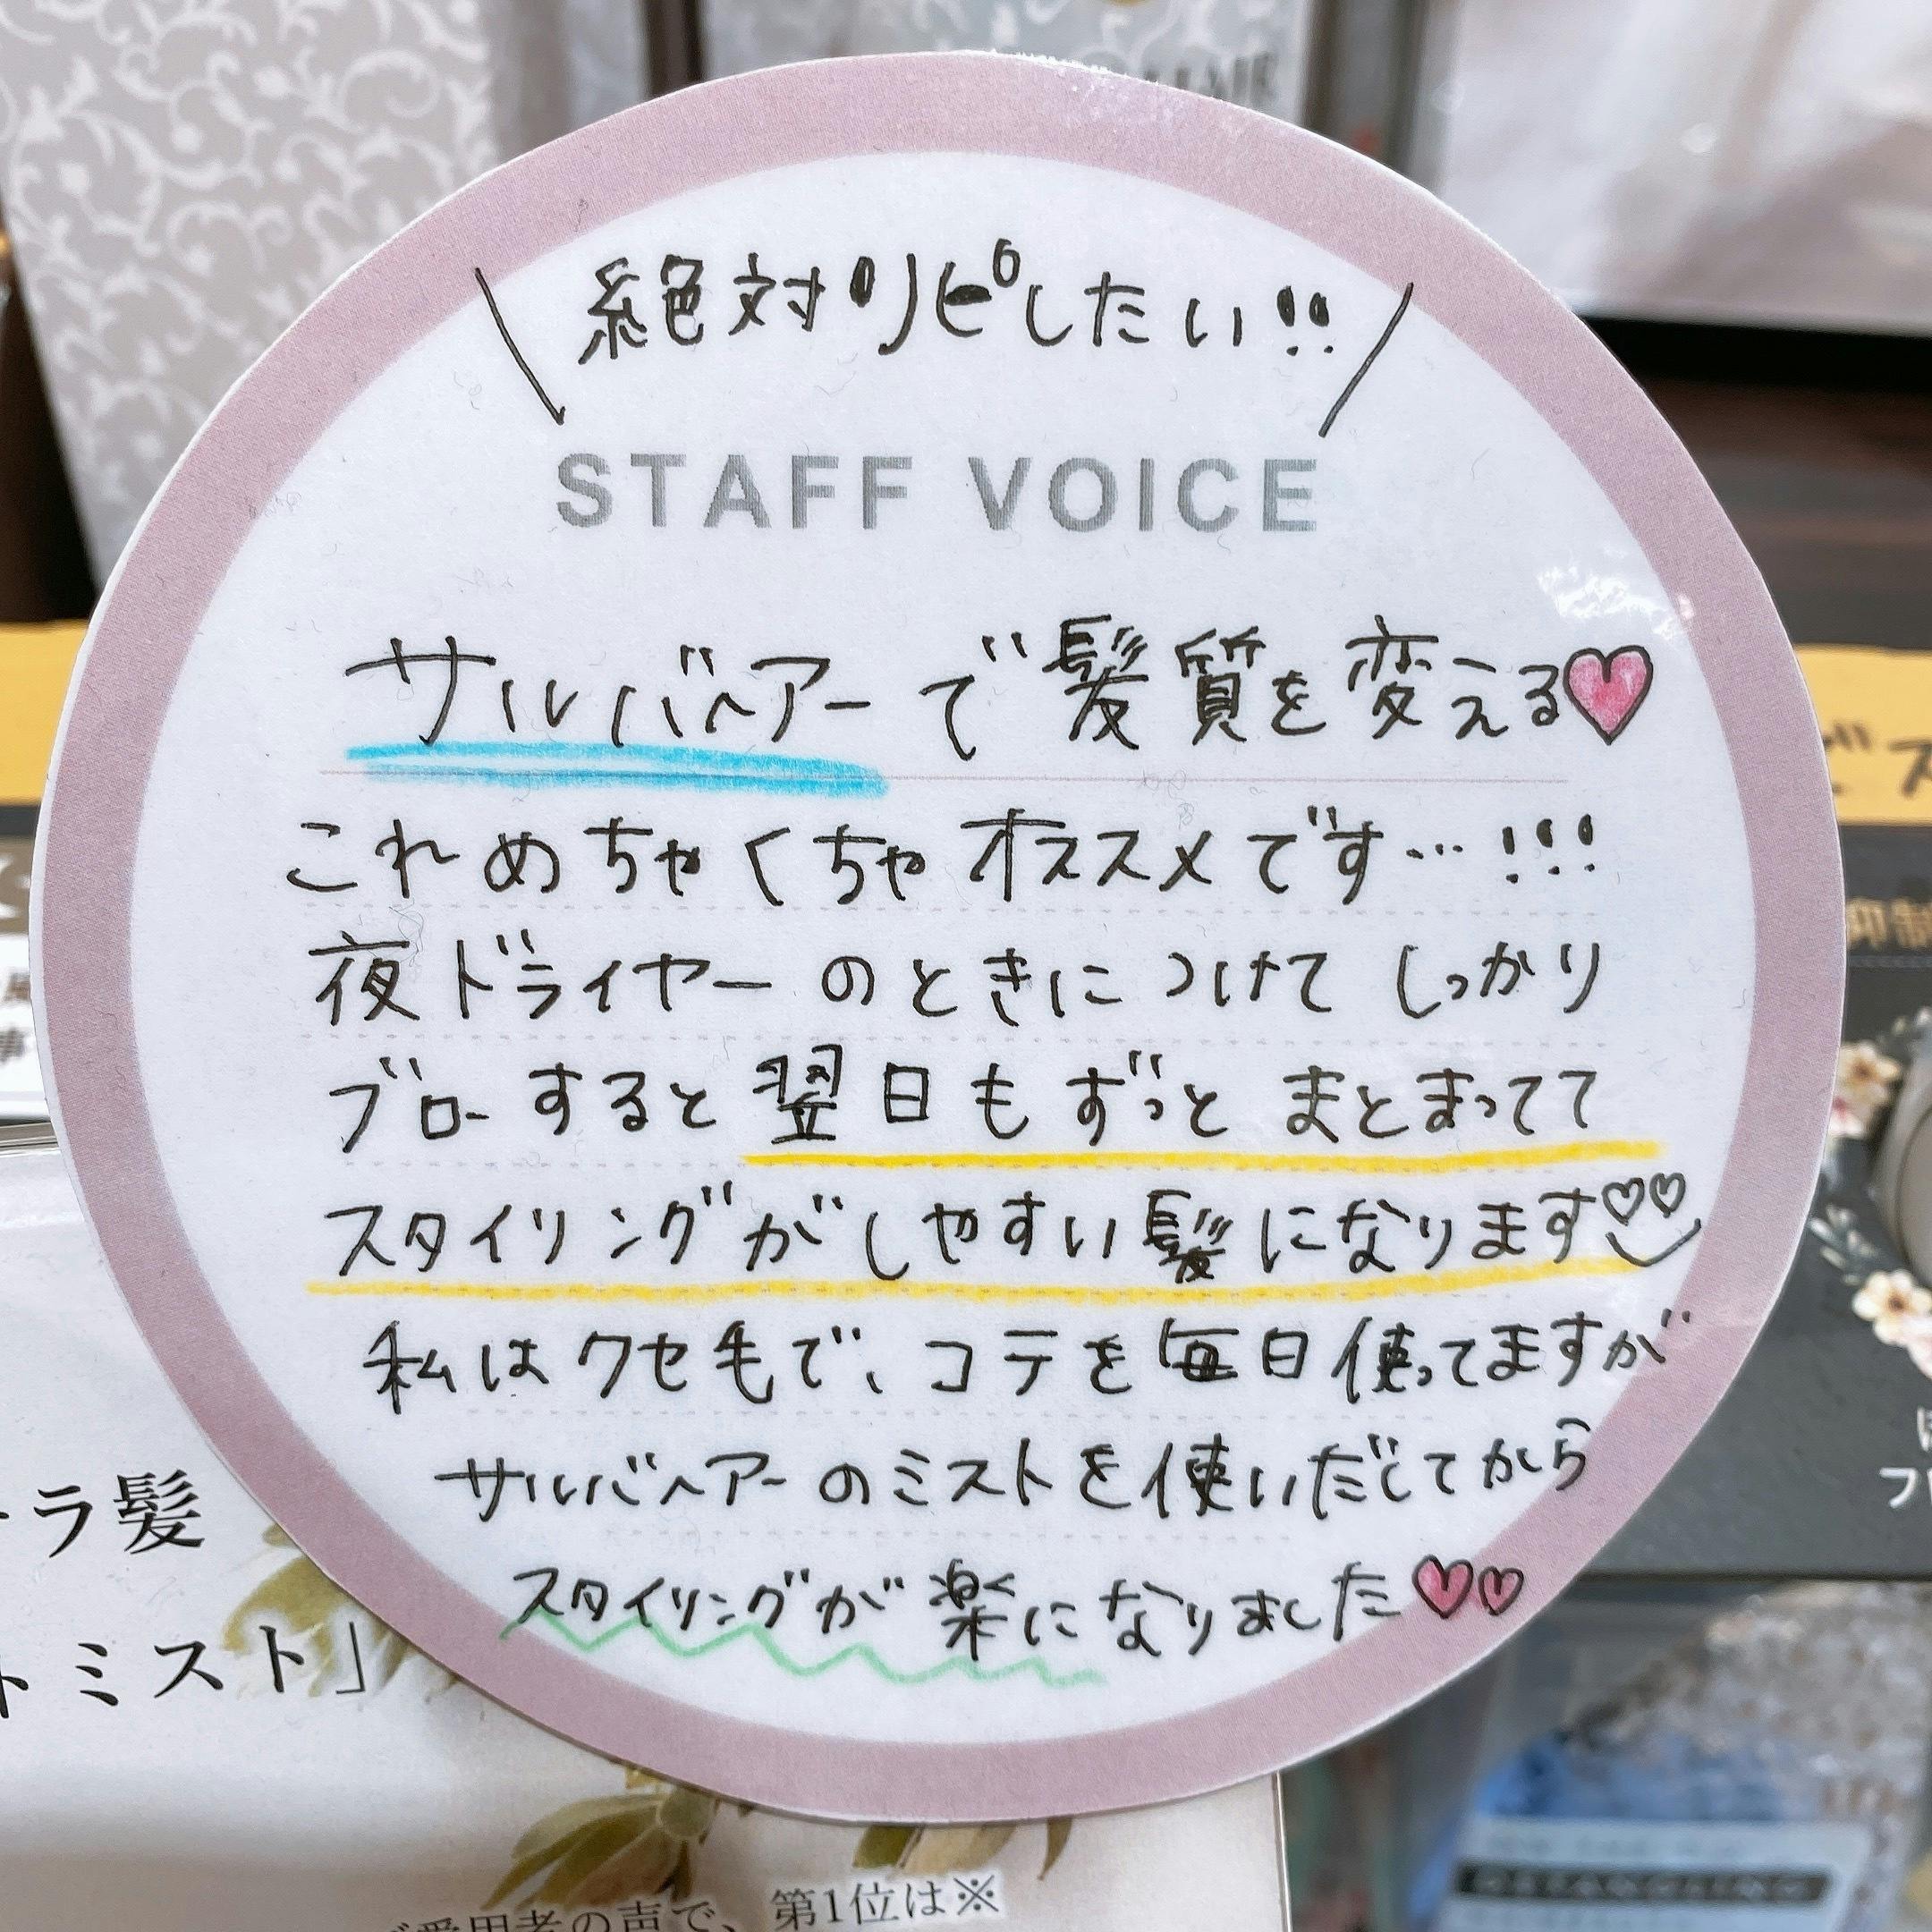 HAIR
絶対リピしたい!!
STAFF VOICE
サルバヘアーで髪質を変える
これめちゃくちゃオススメです…!!!
夜ドライヤーのときにつけてしっかり
ブローすると翌日もずっとまとまってて
スタイリングがしやすい髪になります
私はクセ毛で、コテを毎日使ってますが
サルバヘアーのミストを使いだしてから
スタイリングが楽になりました
ラ髪
トミスト」
愛用者の声で、第1位は※
DETANGLING